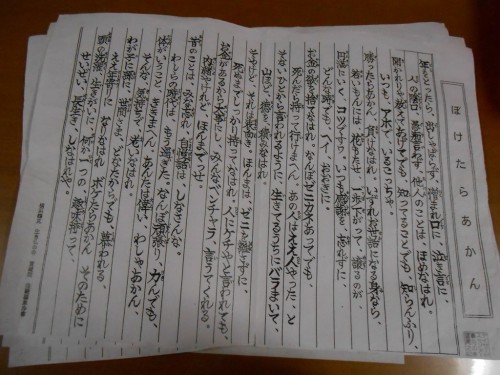 ぼけたらあかん
年をとったら 出しゃばらず 憎まれ口に 泣き言に
人の陰口 愚痴言わず 他人のことは ほめなはれ。
聞かれりゃ教えてあげても 知ってることでも 知らんふり
いつも アホで いるこっちゃ。
勝ったらあかん 負けなはれ いずれお世話になる身なら、
若いもんには 花もたせ 一歩下がって 譲るのが、
円満にいく コツですわ。いつも感謝を 忘れずに
どんな時でも ヘイ おおきに。
お金の欲を 捨てなはれ。なんぼゼニカネあっても、
死んだら持って行けまへん。あの人は ええ人やった、と
そないひとから言われるように 生きてるうちにバラまいて、
山ほど 徳を 積みなはれ。
そやけど、それは表向き、ほんまは ゼニを離さずに
死ぬまで しっかり持ってなはれ。人にケチやと言われても、
お金があるから大事にし みんなベンチャラ 言うてくれる。
内緒やけれど、ほんまでっせ。
昔のことは みな忘れ 自慢話は しなさんな。
わしらの時代は もう過ぎた なんぼ頑張り 力んでも、
体がいうこと、ききまへん、あんたは偉い、わしゃあかん、
そんな 気持ちで 老いなはれ。
わが子に孫に 世間さま、どなたからでも 慕われる。
ええ年寄りに なりなはれ ボケたらあかん そのために
頭の洗濯、生きがいに 何か一つの 趣味持って、
せいぜい 長生き しなはれや。